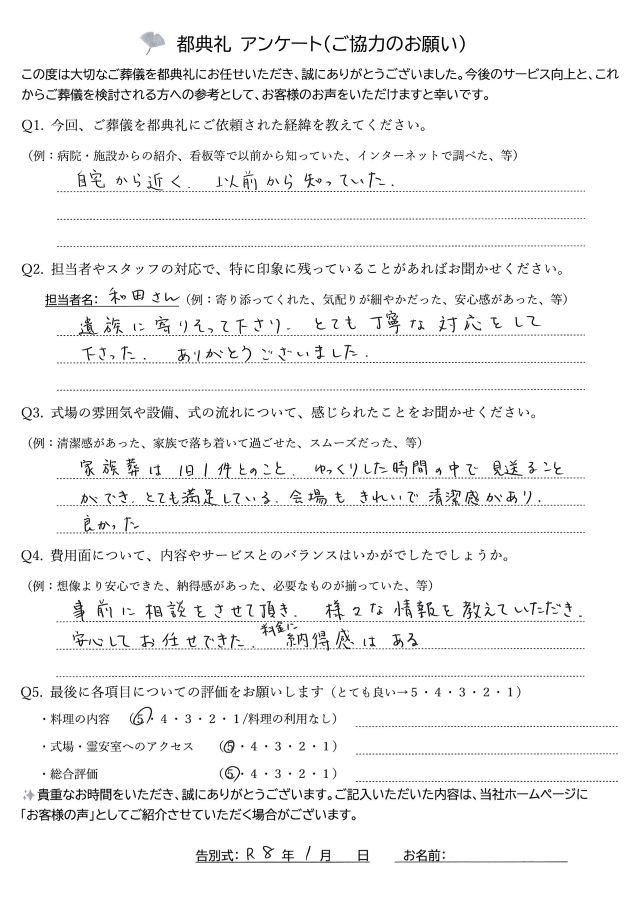 都典礼 アンケート(ご協力のお願い)
この度は大切なご葬儀を都典礼にお任せいただき、誠にありがとうございました。今後のサービス向上と、これ
からご葬儀を検討される方への参考として、お客様のお声をいただけますと幸いです。
Q1. 今回、ご葬儀を都典礼にご依頼された経緯を教えてください。
(例：病院・施設からの紹介、看板等で以前から知っていた、インターネットで調べた、等)
自宅から近く. 以前から知っていた.
Q2. 担当者やスタッフの対応で、特に印象に残っていることがあればお聞かせください。
担当者名： 和田さん (例：寄り添ってくれた、気配りが細やかだった、安心感があった、等)
遺族に寄りそって下さり. とても丁寧な対応をして
下さった. ありがとうございました.
Q3. 式場の雰囲気や設備、式の流れについて、感じられたことをお聞かせください。
(例：清潔感があった、家族で落ち着いて過ごせた、スムーズだった、等)
家族葬は1日1件とのこと. ゆっくりした時間の中で見送ること
ができ. とても満足している. 会場もきれいで清潔感があり.
良かった
Q4. 費用面について、内容やサービスとのバランスはいかがでしたでしょうか。
(例：想像より安心できた、納得感があった、必要なものが揃っていた、等)
事前に相談をさせて頂き. 様々な情報を教えていただき.
安心してお任せできた. 料金に納得感はある
Q5. 最後に各項目についての評価をお願いします(とても良い→5・4・3・2・1)
・料理の内容 (5・4・3・2・1/料理の利用なし)
・式場・霊安室へのアクセス (5・4・3・2・1)
・総合評価 (5・4・3・2・1)
貴重なお時間をいただき、誠にありがとうございます。ご記入いただいた内容は、当社ホームページに
「お客様の声」としてご紹介させていただく場合がございます。
告別式： R8年1月 日 お名前：